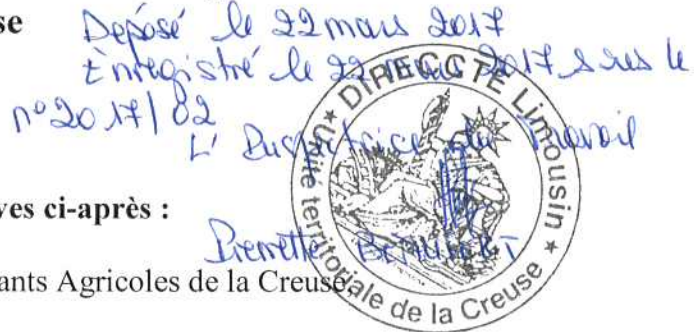 se
Déposé le 22 mars 2017
Enregistré le 22 mars 2017 sous le
n° 2017/02
L'Inspectrice du Travail
DIRECCTE Limousin * Unité territoriale de la Creuse *
ves ci-après :
Pierrette
ants Agricoles de la Creuse,